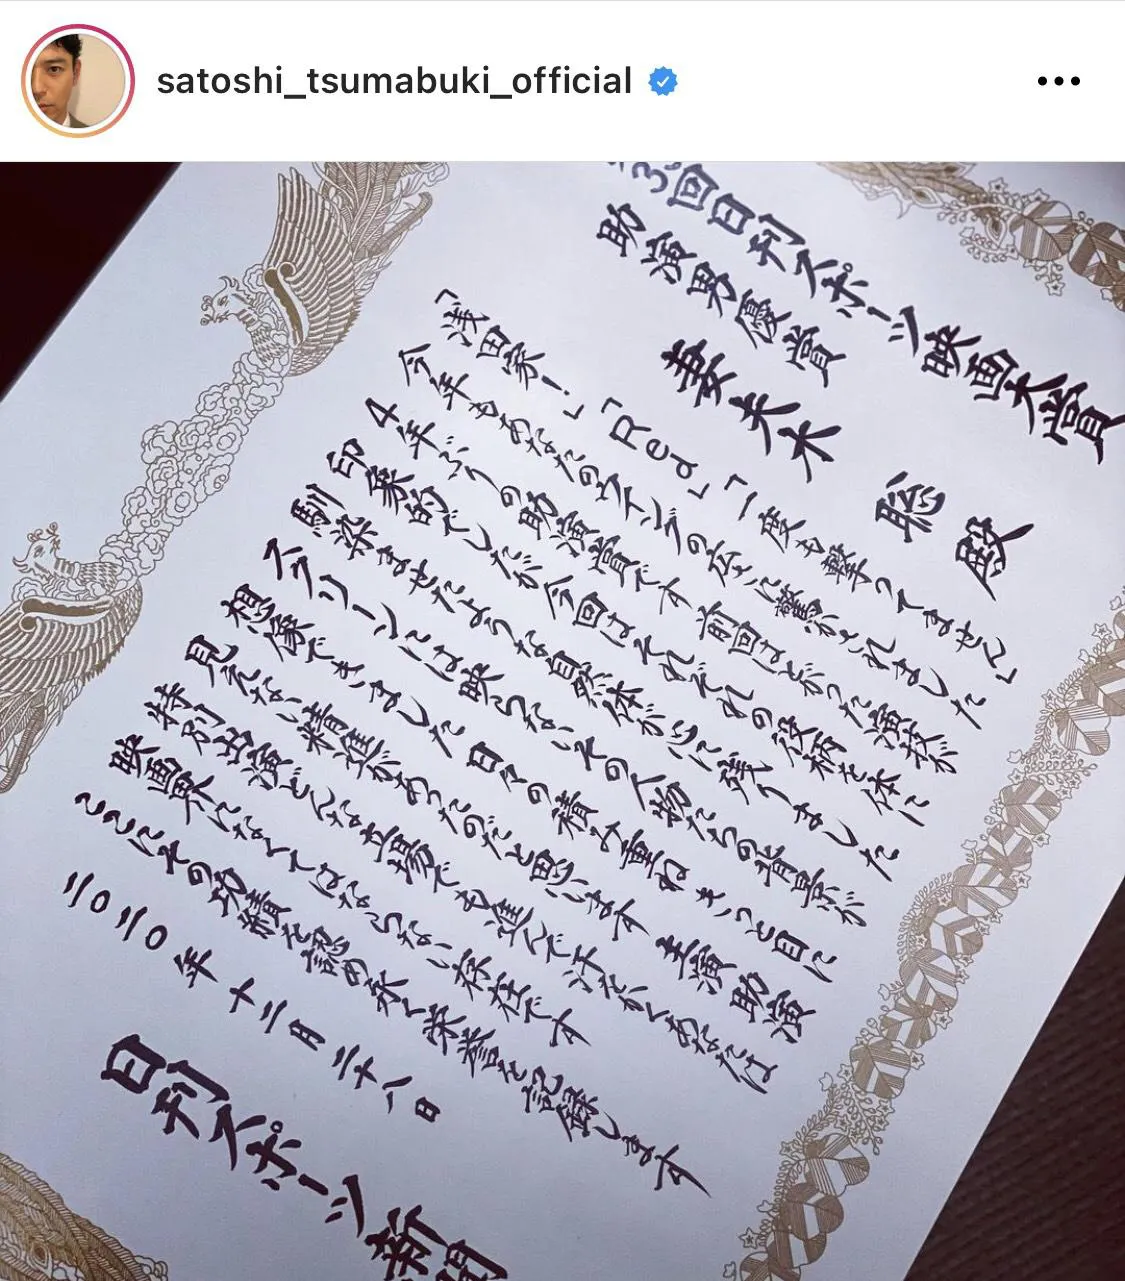 satoshi_tsumabuki_official
3回日刊スポーツ映画大賞
助演男優賞
妻夫木 聡 殿
「浅田家!」「Red」「一度も撃ってません」
今年もあなたのウイングの広さに驚かされました
4年ぶりの助演賞です 前回はとがった演技が
印象的でしたが 今回はそれぞれの役柄を体に
馴染ませたような自然体が心に残りました
スクリーンには映らないその人物たちの背景が
想像できました 日々の積み重ね きっと目に
見えない精進があったのだと思います 主演 助演
特別出演 どんな立場でも進んで汗をかく あなたは
映画界になくてはならない存在です
ここにその功績を認め永く栄誉を記録します
二〇二〇年十二月二十八日
日刊スポーツ新聞